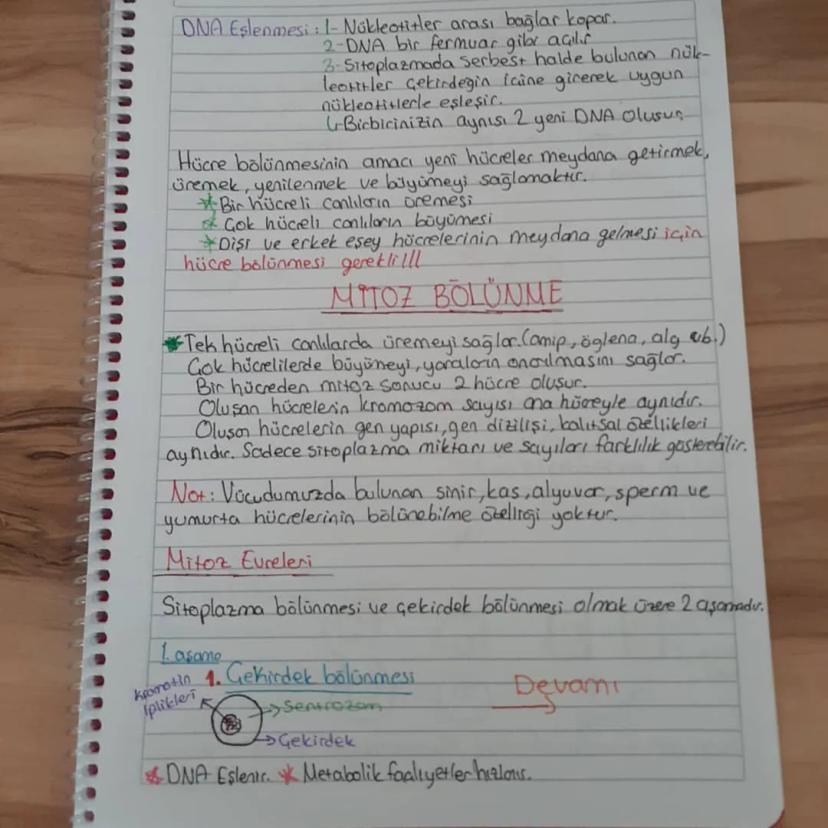 DNA Eşlenmesi: 1- Nükleotitler arası bağlar kopar.
2- DNA bir fermuar gibi açılır
3- Sitoplazmada serbest halde bulunan nük-
leotitler çekirdeğin içine girerek uygun
nükleotitlerle eşleşir.
4- Birbirinizin aynısı 2 yeni DNA oluşur
Hücre bölünmesinin amacı yeni hücreler meydana getirmek,
üremek, yenilenmek ve büyümeyi sağlamaktır.
* Bir hücreli canlıların üremesi
* Çok hücreli canlıların büyümesi
* Dişi ve erkek eşey hücrelerinin meydana gelmesi için
hücre bölünmesi gerekli!!!
MİTOZ BÖLÜNME
* Tek hücreli canlılarda üremeyi sağlar. (amip, öglena, alg vb.)
Çok hücrelilerde büyümeyi, yaraların onarılmasını sağlar.
Bir hücreden mitoz sonucu 2 hücre oluşur.
Oluşan hücrelerin kromozom sayısı ana hücreyle aynıdır.
Oluşan hücrelerin gen yapısı, gen dizilişi, kalıtsal özellikleri
aynıdır. Sadece sitoplazma miktarı ve sayıları farklılık gösterebilir.
Not: Vücudumuzda bulunan sinir, kas, alyuvar, sperm ve
yumurta hücrelerinin bölünebilme özelliği yoktur.
Mitoz Evreleri
Sitoplazma bölünmesi ve çekirdek bölünmesi olmak üzere 2 aşamadır.
1. aşama
1. Çekirdek bölünmesi
Devamı
Kromatin
iplikleri
Sentrozom
Çekirdek
* DNA Eşlenir. * Metabolik faaliyetler hızlanır.